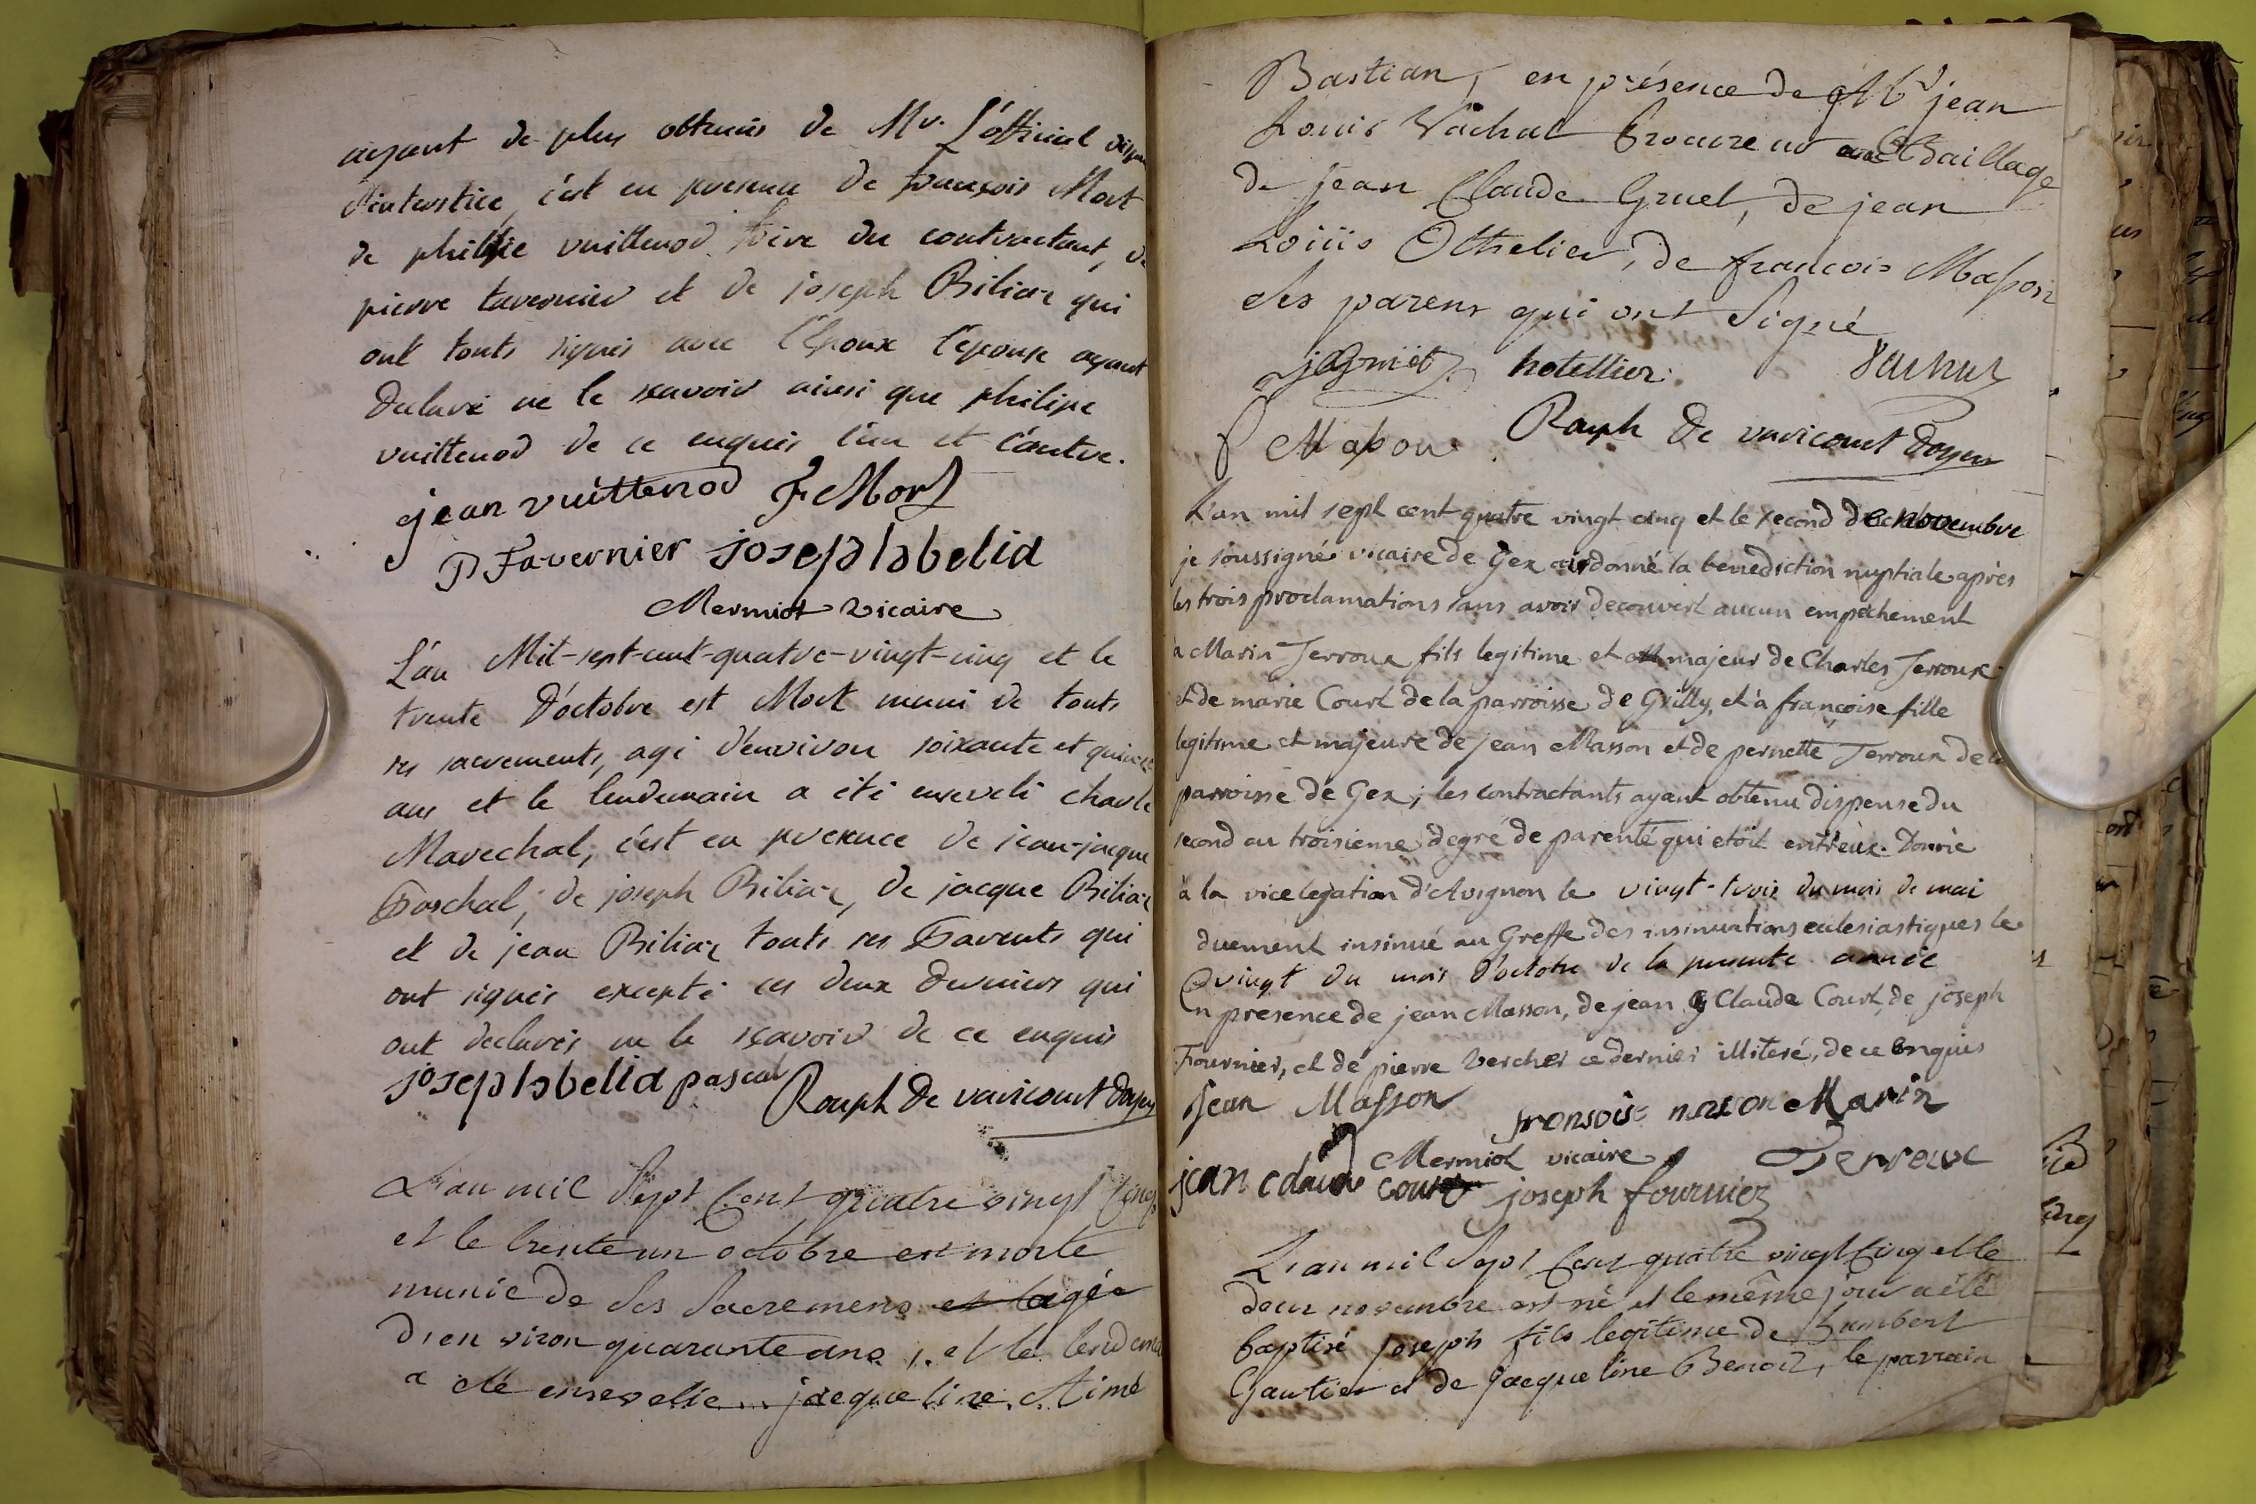 ayant de plus obtenus de Mr. L'official dispen
d'interstice, c'est en presence de françois Mort
de philipe vuittenod frere du contractant, de
pierre tavernier et de joseph Biliaz qui
ont touts signés avec l'Epoux l'epouse ayant
declaré ne le sçavoir ainsi que philipe
vuittenod de ce enquis l'un et l'autre.
jean vuittenod F Mort
P Tavernier joseph
Mermiot vicaire
L'an Mil-sept-cent-quatre-vingt-cinq et le
trente d'octobre est Mort muni de touts
ses sacrements, agé d'environ soixante et quinze
ans et le lendemain a été enseveli charle
Marechal, c'est en presence de jean-jacque
Paschal, de joseph Biliaz, de jacque Biliaz
et de jean Biliaz touts ses Parents qui
ont signés excepté ces deux derniers qui
ont declarés ne le sçavoir de ce enquis
joseph pascal
Rouph de varicourt doyen
L'an mil Sept Cent quatre vingt Cinq
et le trente un octobre est morte
munie de Ses Sacremens et agée
d'en viron quarante ans, et le lendemai
a été ensevelie jacqueline Aimé
Bastian, en présence de Mr jean
Louis Vachat Procureur au Bailliage
de jean Claude Gruet, de jean
Loüis Othelier, de francois Masson
Ses parens qui ont Signé
hotellier Vachat
f Masson Rouph de varicourt doyen
L'an mil sept cent quatre vingt cinq et le second de novembre
je soussigné vicaire de Gex ai donné la benediction nuptiale après
les trois proclamations sans avoir decouvert aucun empechement
à Marin Terroux fils legitime et majeur de Charles Terroux
et de marie Court de la parroisse de Grilly, et à françoise fille
legitime et majeure de jean Masson et de pernette Terroux de la
parroisse de Gex; les contractants ayant obtenu dispense du
second au troisieme degré de parenté qui etoit entr'eux. Donné
à la vice legation d'Avignon le vingt-trois du mois de mai
duement insinué au Greffe des insinuations eclesiastiques le
vingt du mois d'octobre de la presente année
En presence de jean Masson, de jean Claude Court, de joseph
Fournier, et de pierre Vercher ce dernier illiteré, de ce enquis
Jean Masson fronsoise mason Marin
Mermiot vicaire Terroux
jean claude court joseph fournier
L'an mil Sept Cent quatre vingt Cinq et le
deux novembre est né et le même jour a été
baptisé joseph fils legitime de Humbert
Gautier et de jacqueline Benoit, le parrain